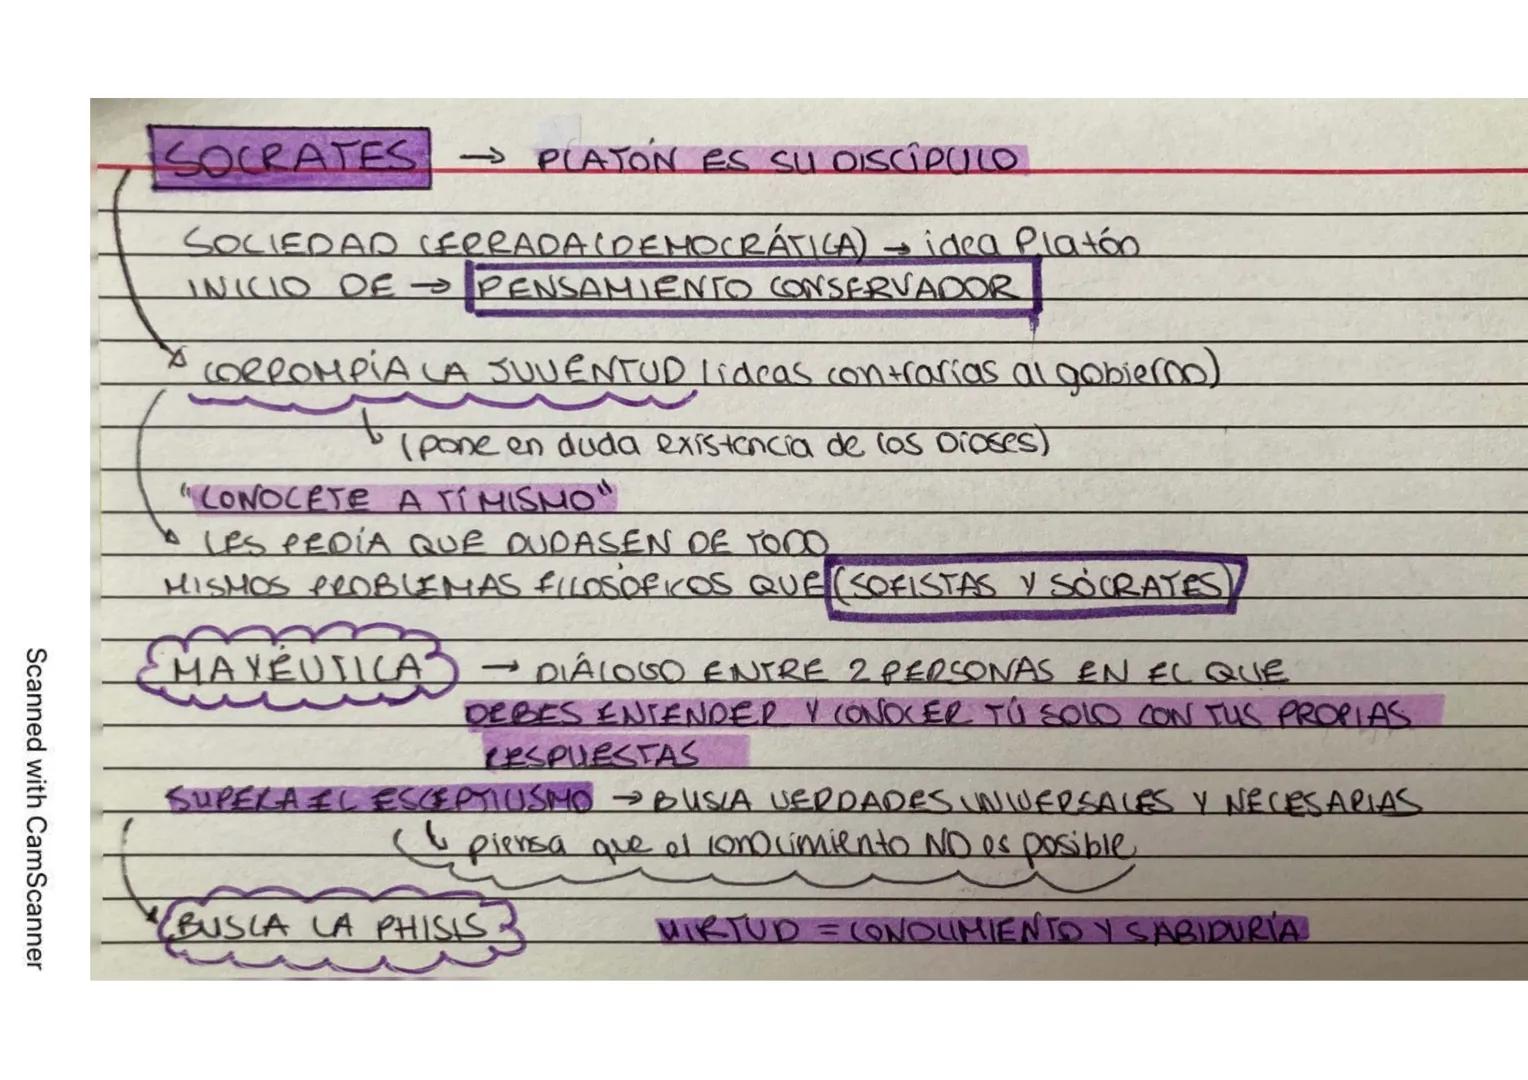 SOCRATES → PLATÓN ES SU DISCÍPULO
SOCIEDAD CERRADA (DEMOCRÁTICA) → idea Platón
INICIO DE → PENSAMIENTO CONSERVADOR
CORROMPÍA LA JUVENTUD (ideas contrarias al gobierno)
(pone en duda existencia de los Dioses)
"CONOCETE A TÍ MISMO"
LES PEDÍA QUE DUDASEN DE TODO
MISMOS PROBLEMAS FILOSÓFICOS QUE (SOFISTAS Y SÓCRATES)
MAYÉUTICA → DIÁLOGO ENTRE 2 PERSONAS EN EL QUE
DEBES ENTENDER Y CONOCER TÚ SOLO CON TUS PROPIAS
RESPUESTAS
SUPERA EL ESCEPTICISMO → BUSCA VERDADES UNIVERSALES Y NECESARIAS
piensa que el conocimiento NO es posible
BUSCA LA PHISIS VIRTUD = CONOCIMIENTO Y SABIDURÍA
Scanned with CamScanner